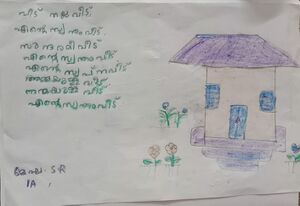 വീട് നല്ല വീട്
എന്റെ സ്വന്തം വീട്
സുന്ദരമീ വീട്
എന്റെ സ്വന്തം വീട്
എന്റെ സ്വപ്ന വീട്
അമ്മയുള്ള വീട്
നന്മയുള്ള വീട്
എന്റെ സ്വന്തം വീട്
S R
1A